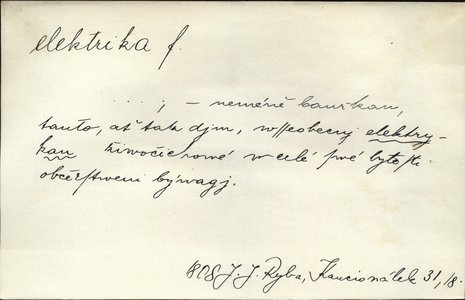 elektrika f.
....; – neméně bauřkau,
tauto, ať tak djm, wsseobecný elektry-
kau žiwočichowé w celé své bytosti
občerstweni býwagj.
1808 J. J. Ryba, Kancionálek 31, 18.